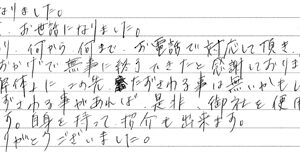 なりました。
、お世話になりました。
り、何から何まで、お電話で対応して頂き、
おかげで無事に終了できたと感謝しておりま
解体」に、この先、たずさわる事は無いかもし
ずさわる事があれば、是非、御社を使用
す。自身を持って、紹介も出来ます。
りがとうございました。